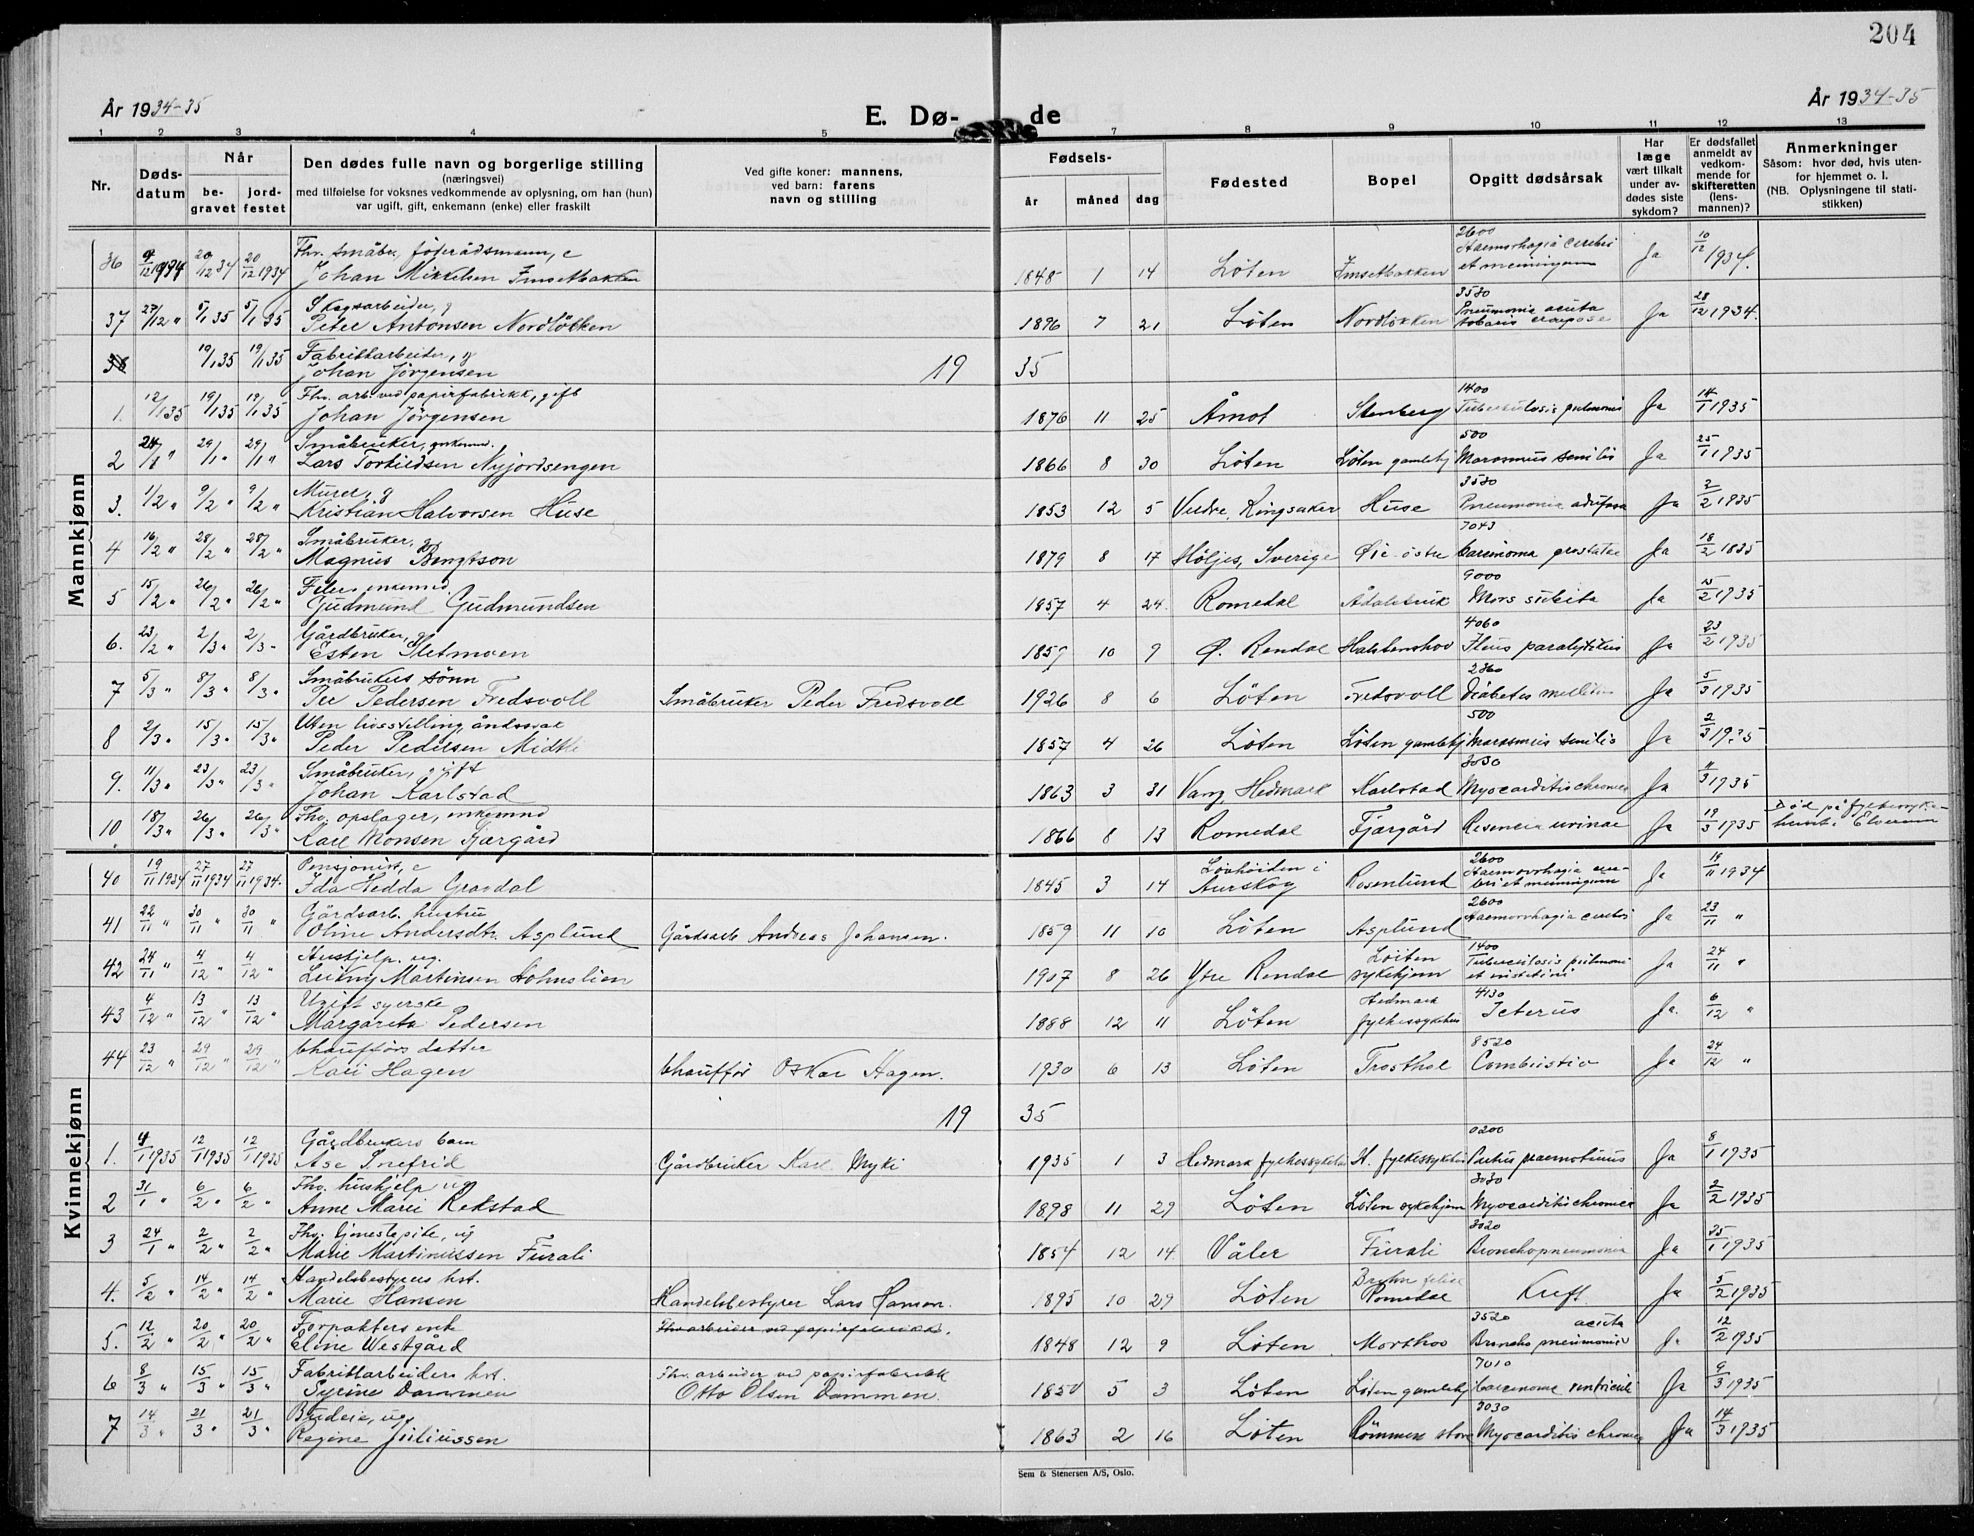 204
År 1934-35
E. Dø-
de
År 1934-35
1 2 3 4 5 7 8 9 10 11 12 13
Nr.
Døds-
datum
Når
be-
gravet
jord-
festet
Den dødes fulle navn og borgerlige stilling
(næringsvei)
med tilføielse for voksnes vedkommende av oplysning, om han (hun)
var ugift, gift, enkemann (enke) eller fraskilt
Ved gifte koner: mannens,
ved barn: farens
navn og stilling
Fødsels-
år måned dag
Fødested
Bopel
Opgitt dødsårsak
Har
læge
vært tilkalt
under av-
dødes siste
sykdom?
Er dødsfallet
anmeldt av
vedkom-
mende for
skifteretten
(lens-
mannen)?
Anmerkninger
Såsom: hvor død, hvis uten-
for hjemmet o. l.
(NB. Oplysningene til stati-
stikken)
Mannkjønn
Fhv. småbr. føderådsmann, e 2600
36 9/12 1934 20/12 34 20/12 1934 Johan Mikkelsen Imsetbakken 1848 1 14 Løten Imsetbakken Haemorhagia cerebri et meningum Ja 10/12 1934.
Skogsarbeider, g 3580
37 27/12 " 5/1 35 5/1 35 Peter Antonsen Nordløkken 1896 7 21 Løten Nordløkken Pneumonia acuta lobaris crouposa Ja 28/12 1934.
Fabrikkarbeider, g
38 19/1 35 19/1 35 Johan Jörgensen 19 35
Fhv. arb. ved papirfabrikk, gift 1400
1. 12/1 35 19/1 35 19/1 35 Johan Jörgensen 1876 11 25 Åmot Stenberg Tuberculosis pulmonis Ja 14/1 1935
Småbruker, enkemd. 500
2 24/1 " 29/1 " 29/1 " Lars Torkildsen Nyjordsengen 1866 8 30 Löten Löten gamlehj Marasmus senilis Ja 25/1 1935
Murer, g 3580
3. 1/2 " 9/2 " 9/2 " Kristian Halvorsen Huse 1853 12 5 Veldre, Ringsaker Huse Pneumonia Ja 2/2 1935
Småbruker, g 7043
4 16/2 " 28/2 " 28/2 " Magnus Bengtson 1879 8 17 Höljes, Sverige Øie østre Carcinoma prostatae Ja 18/2 1835
Feier, enkemnd. 9000
5 15/2 " 26/2 " 26/2 " Gudmund Gudmundsen 1857 4 24. Romedal Ådalsbruk Mors subita Ja 15/2 1935
Gårdbruker, g 4060
6. 23/2 " 2/3 " 2/3 " Esten Sletmoen 1859 10 9 Ø. Rendal Halstenshov Ileus paralyticus Ja 23/2 1935
Småbrukers sönn 2860
7 5/3 " 8/3 " 8/3 " Per Pedersen Fredsvoll Småbruker Peder Fredsvoll 1926 8 6 Löten Fredsvoll Diabetes mellitus Ja 5/3 1935
Uten livsstilling, åndssvak 500
8 2/3 " 15/3 " 15/3 " Peder Pedersen Midtli 1857 4 26 Löten Löten gamlehj Marasmus senilis Ja 2/3 1935
Småbruker, gift 3030
9. 11/3 " 23/3 " 23/3 " Johan Karlstad 1863 3 31 Vang, Hedmark Karlstad Myocarditis chronica Ja 11/3 1935
Fhv. opslager, enkemnd
10. 18/3 " 26/3 " 26/3 " Karl Monsen Fjærgård 1866 8 13 Romedal Fjærgård urinae Ja 19/3 1935 Död på fylkessyke- huset i Elverum
Kvinnekjønn
Pensjonist, e 2600
40 19/11 1934 27/11 1934 27/11 1934. Ida Hedda Grandal 1845 3 14 Lövhöiden i Aurskog Rosenlund Haemorrhagia cerebri et meningum Ja 19/11 1934
Gårdsarb. hustru 2600
41 22/11 " 30/11 " 30/11 " Oline Andersdtr. Asplund Gårdsarb. Andreas Johansen. 1859 11 10 Löten Asplund Haemorrhagia cerebri Ja 23/11 "
Hushjelp. ug. 1400
42 24/11 " 4/12 " 4/12 " Leikny Martinsen Holmslien 1907 8 26 Ytre Rendal Löiten sykehjem Tuberculosis pulmoni et Ja 24/11 "
Ugift syerske 4130
43 4/12 " 13/12 " 13/12 " Margareta Pedersen 1888 12 11 Löten Hedmark fylkessykehus Icterus Ja. 6/12 "
Chaufförs datter 8520
44 23/12 " 29/12 " 29/12 " Kari Hagen Chauffør Oskar Hagen. 1930 6 13 Löten Trosthol Combustio Ja 24/12 "
19 35
Gårdbrukers barn 0200
1. 4/1 1935 12/1 1935 12/1 1935 Åse Snefrid Gårdbruker Karl Myki 1935 1 3 Hedmark fylkessykehus H. fylkessykehus Partus praematurus Ja 8/1 1935
Fhv. hushjelp ug 3030
2 31/1 " 6/2 " 6/2 " Anne Marie Rekstad 1898 11 29 Löten Löten sykehjem Myocarditis chronica Ja 2/2 1935
Fhv. tjenestepike, ug 3020
3 24/1 " 2/2 " 2/2 " Marie Martinussen Furali 1854 12 14. Våler Furali Bronchopneumonia Ja 25/1 1935
Handelsbestyrers hst.
4. 5/2 " 14/2 " 14/2 " Marie Hansen Handelsbestyrer Lars Hansen. 1895 10 29 Löten Romedal Kreft Ja 5/2 1935
Forpakters enke Fhv arbeider ved papirfabrikk. 3520 acuta
5. 12/2 " 20/2 " 20/2 " Eline Westgård 1848 12 9 Löten Morthov Broncho pneumonia Ja 12/2 1935
Fabrikkarbeiders hst. Fhv. arbeider ved papirfabrikk 7010
6 8/3 " 15/3 " 15/3 " Syrine Dammen Otto Olsen Dammen. 1850 5 3 Löten Löten gamlehj Carcinoma ventriculi Ja 9/3 1935
Budeie, ug. 3030
7 14/3 " 21/3 " 21/3 " Regine Juliussen 1863 2 16 Löten Römmen store Myocarditis chronica Ja 14/3 1935
Sem & Stenersen A/S, Oslo.